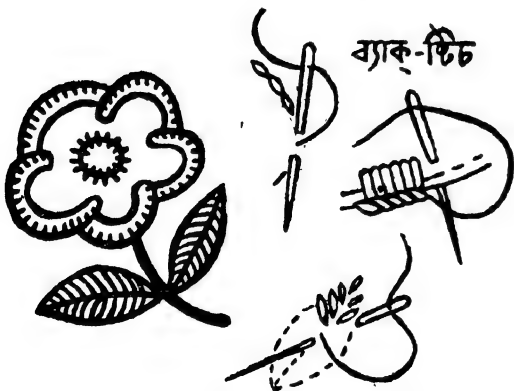 ব্যাক্-ষ্টিচ